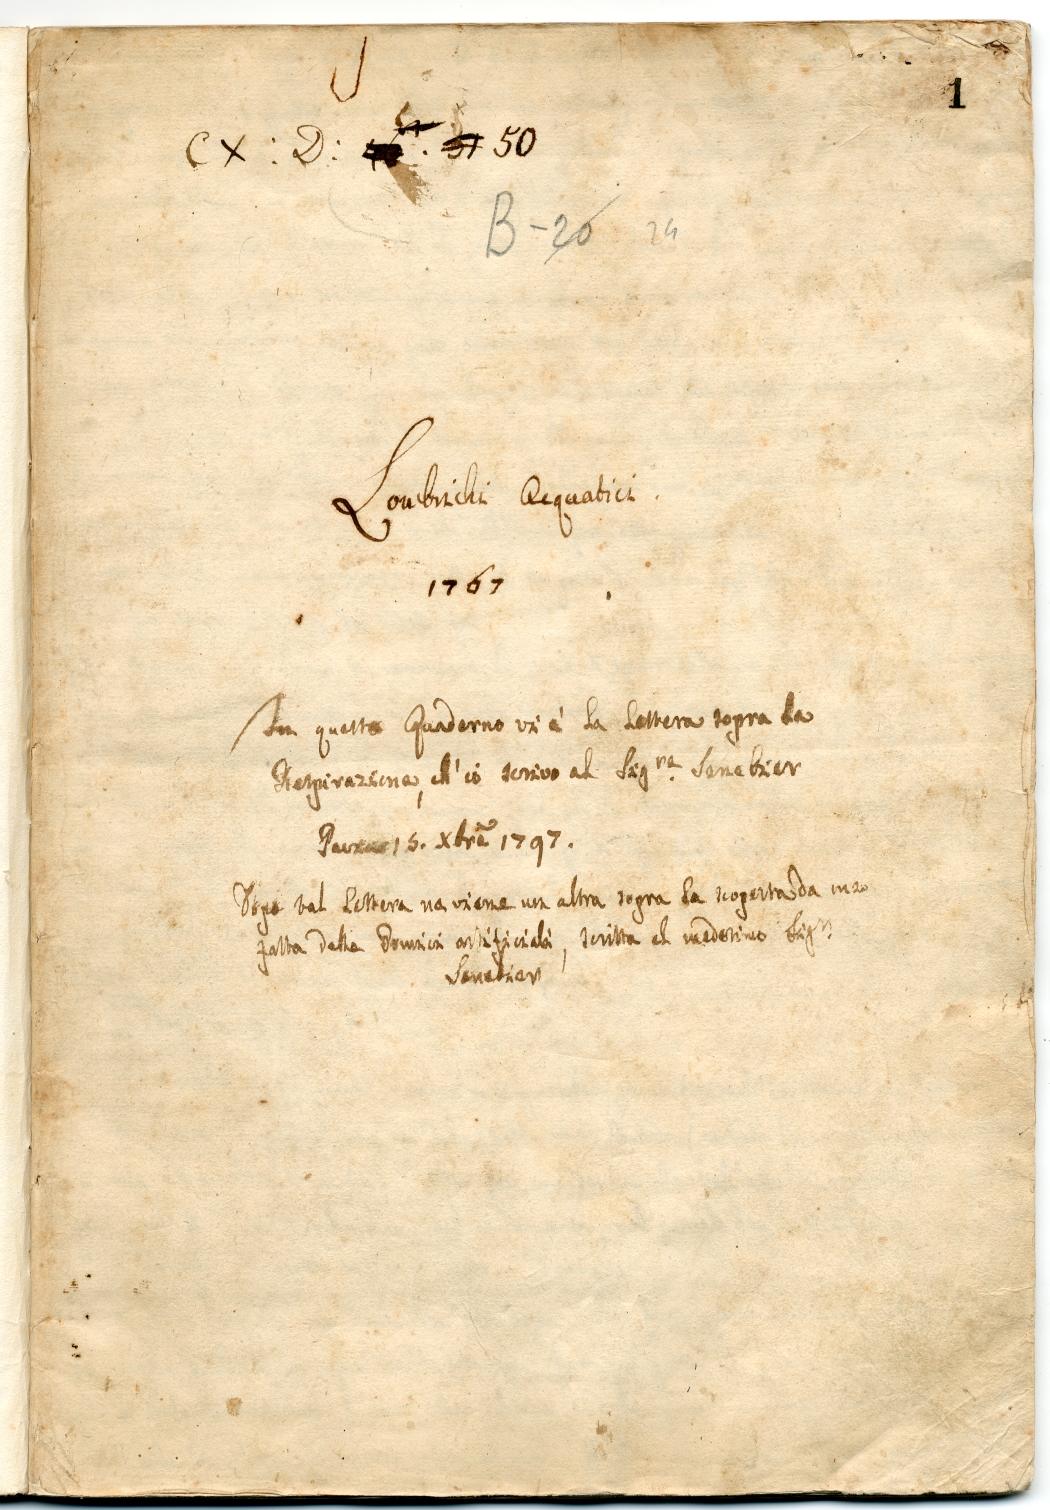 1
CX : D : 50
B - 26 24
Lombrichi Acquatici .
1767
In questo Quaderno vi è la Lettera sopra la
Respirazione, ch' io scrivo al Sig.re Senebier
Pavia 15. Xbre 1797.
Dopo tal Lettera ne viene un altra sopra la scoperta da me
fatta delle artificiali, scritta al medesimo Sig.r
Senebier